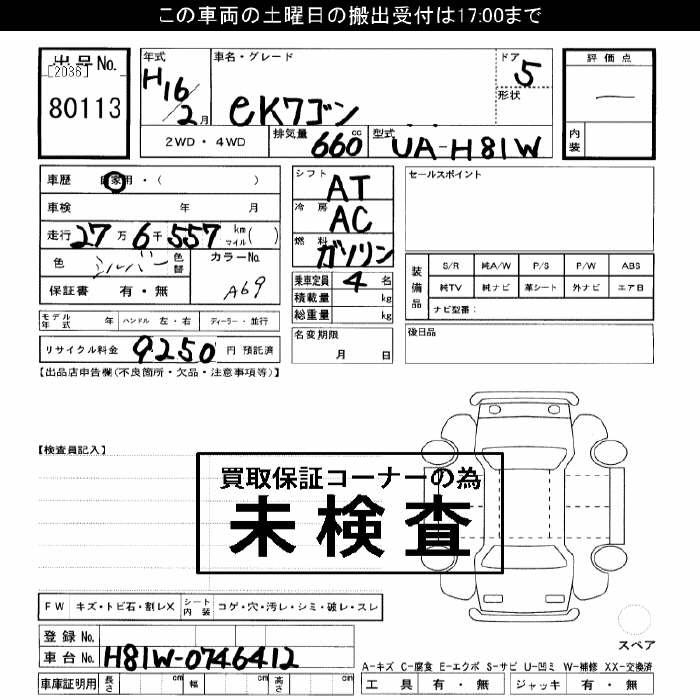 この車両の土曜日の搬出受付は17:00まで
出品No.
[2036]
80113
年式
H16/2月
車名・グレード
eKワゴン
ドア
5
形状
評価点
—
内装
2WD・4WD
排気量
660cc
型式
UA-H81W
車歴 自家用・( )
車検 年 月
走行 27万6千557 km マイル( )
色 シルバー 色替
カラーNo.
A69
保証書 有・無
シフト
AT
冷房
AC
燃料
ガソリン
乗車定員 4 名
積載量 kg
総重量 kg
セールスポイント
装備品
S/R 純A/W P/S P/W ABS
純TV 純ナビ 革シート 外ナビ エアB
ナビ型番:
モデル年式 年 ハンドル 左・右 ディーラー・並行
リサイクル料金 9250 円 預託済
名変期限
月 日
後日品
【出品店申告欄(不良箇所・欠品・注意事項等)】
【検査員記入】
買取保証コーナーの為
未検査
FW キズ・トビ石・割レX シート内装 コゲ・穴・汚レ・シミ・破レ・スレ
スペア
登録No.
車台No. H81W-0746412
A-キズ C-腐食 E-エクボ S-サビ U-凹ミ W-補修 XX-交換済
車庫証明用 長さ cm 幅 cm 高さ cm
工具 有・無 ジャッキ 有・無